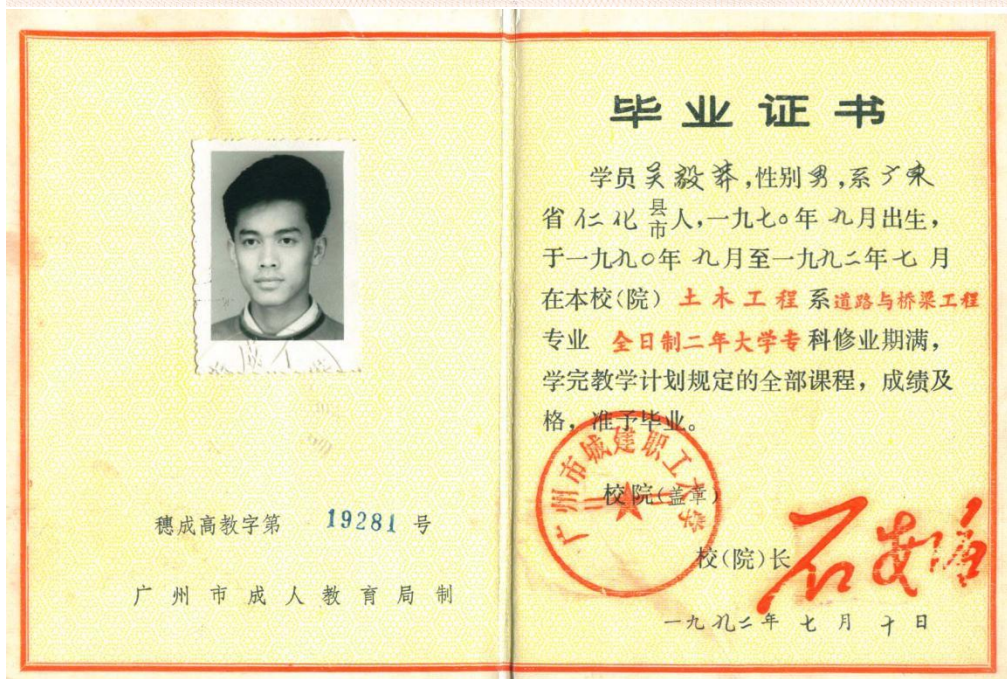 穗成高教字第 19281 号
广州市成人教育局制
毕业证书
学员吴毅莽,性别男,系广东
省仁化县市人,一九七〇年九月出生,
于一九九〇年九月至一九九二年七月
在本校(院)土木工程系道路与桥梁工程
专业 全日制二年大学专科修业期满,
学完教学计划规定的全部课程，成绩及
格，准予毕业。
广州市城建职工大学
校院(盖章)
校(院)长
一九九二年七月十日